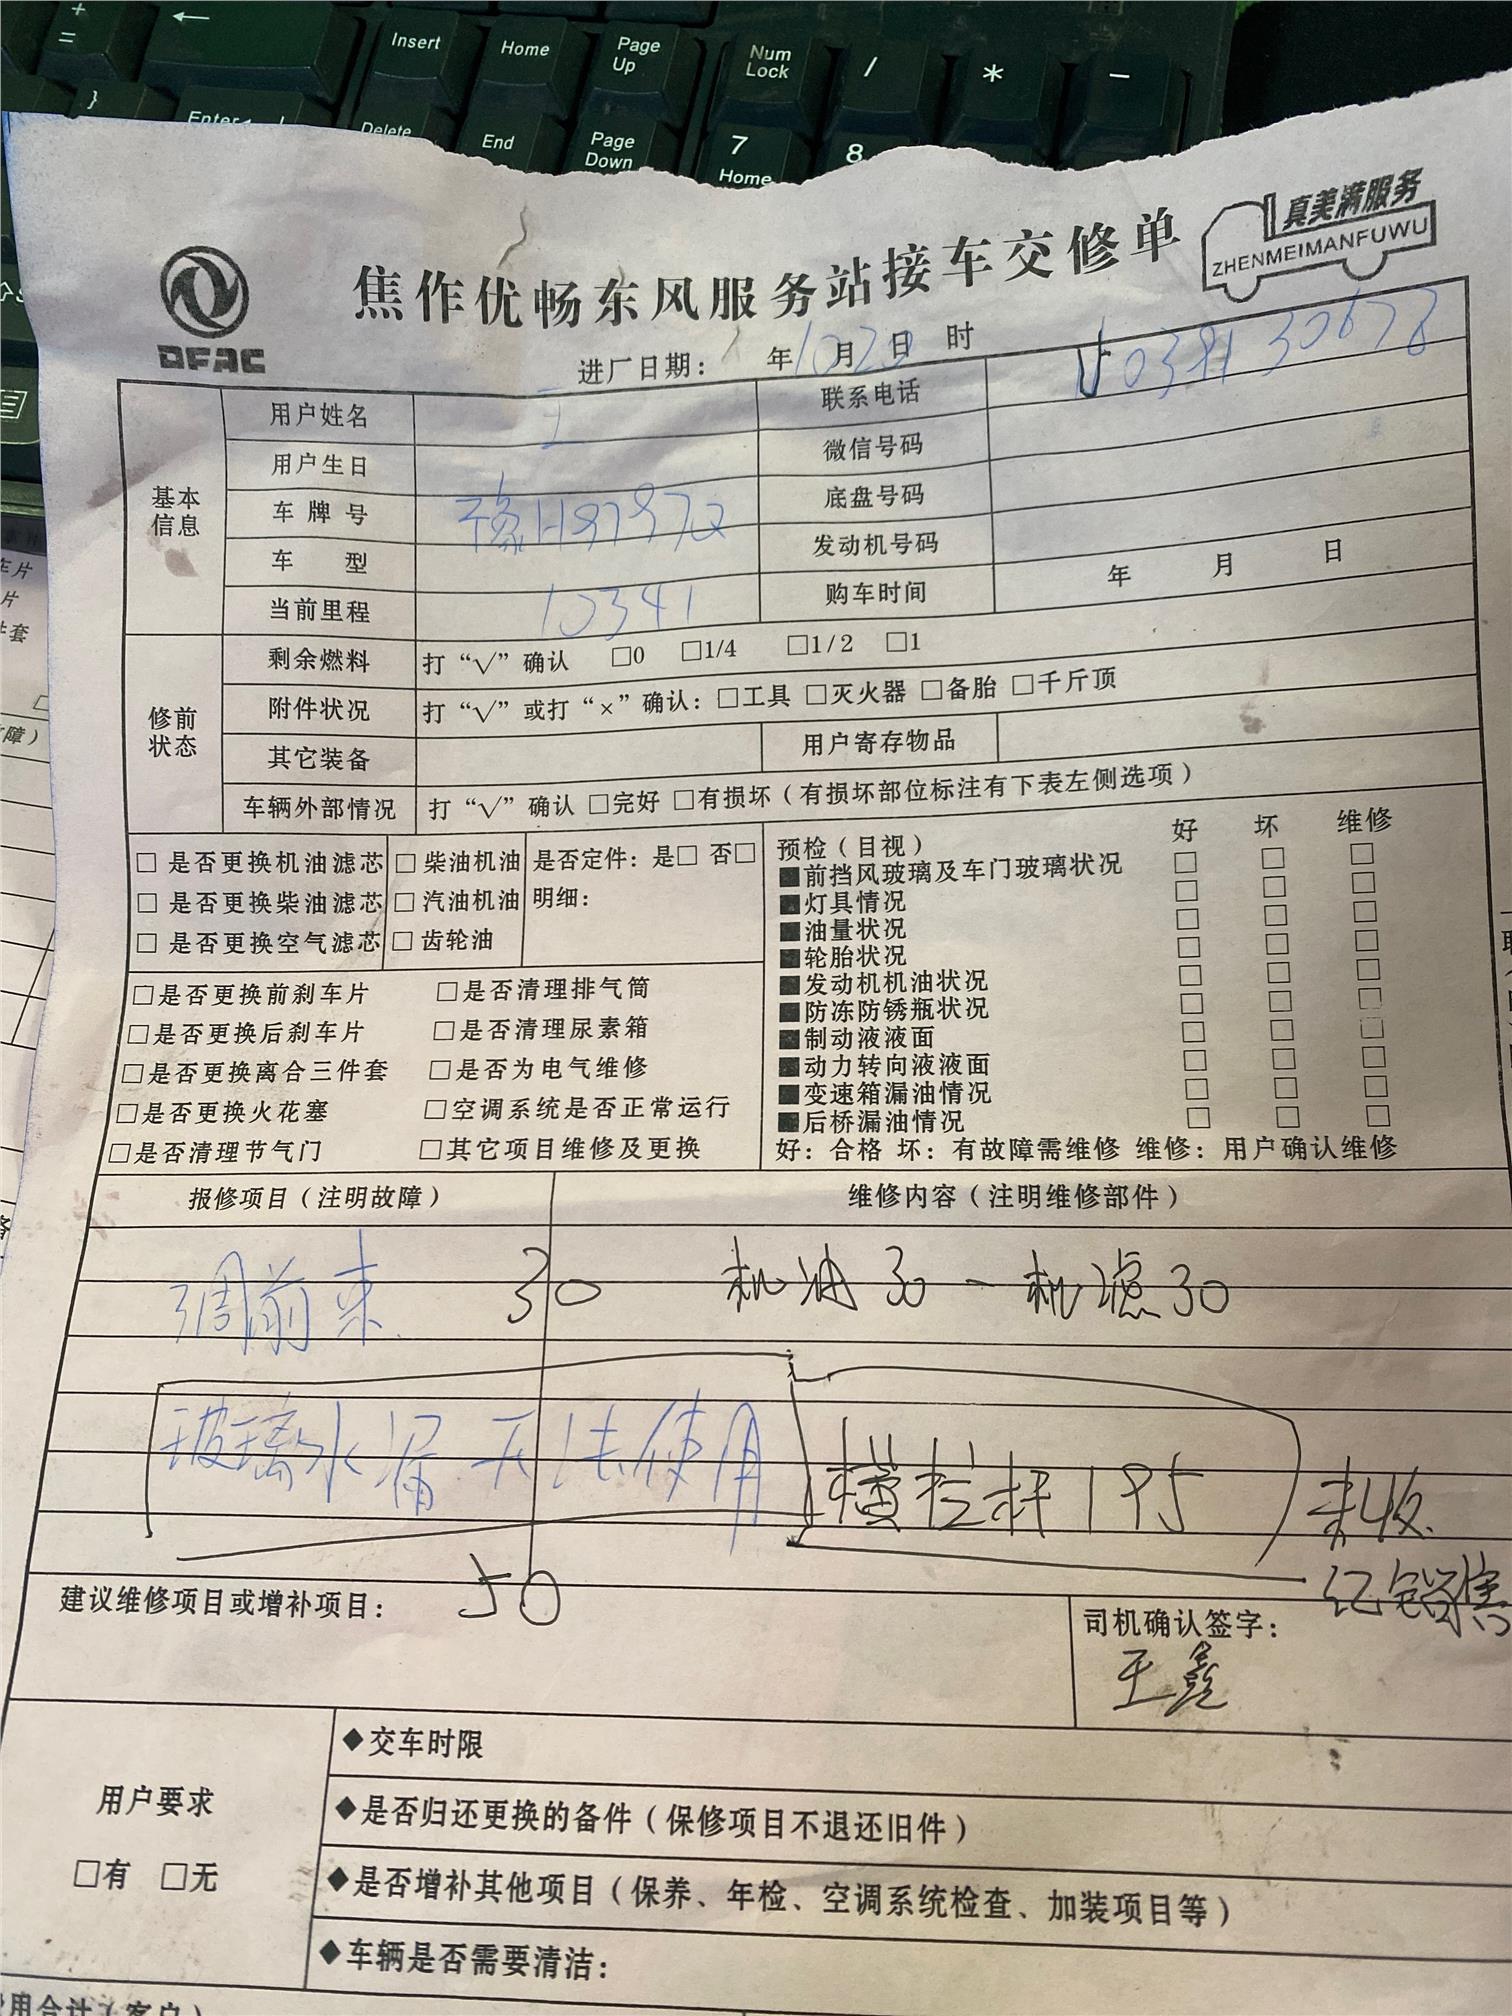 +
=
←
Insert
Home
Page Up
Num Lock
/
*
-
}
Enter
Delete
End
Page Down
7
Home
8
真美满服务
ZHENMEIMANFUWU
DFAC
焦作优畅东风服务站接车交修单
进厂日期： 年10月20日 时
基本信息
用户姓名 王 联系电话
用户生日 微信号码
车牌号 底盘号码
车 型 发动机号码
当前里程 10341 购车时间 年 月 日
修前状态
剩余燃料 打“√”确认 □0 □1/4 □1/2 □1
附件状况 打“√”或打“×”确认：□工具 □灭火器 □备胎 □千斤顶
其它装备 用户寄存物品
车辆外部情况 打“√”确认 □完好 □有损坏（有损坏部位标注有下表左侧选项）
□ 是否更换机油滤芯 □ 柴油机油 是否定件：是□ 否□
□ 是否更换柴油滤芯 □ 汽油机油 明细：
□ 是否更换空气滤芯 □ 齿轮油
□是否更换前刹车片 □是否清理排气筒
□是否更换后刹车片 □是否清理尿素箱
□是否更换离合三件套 □是否为电气维修
□是否更换火花塞 □空调系统是否正常运行
□是否清理节气门 □其它项目维修及更换
预检（目视） 好 坏 维修
■前挡风玻璃及车门玻璃状况 □ □ □
■灯具情况 □ □ □
■油量状况 □ □ □
■轮胎状况 □ □ □
■发动机机油状况 □ □ □
■防冻防锈瓶状况 □ □ □
■制动液液面 □ □ □
■动力转向液液面 □ □ □
■变速箱漏油情况 □ □ □
■后桥漏油情况 □ □ □
好：合格 坏：有故障需维修 维修：用户确认维修
报修项目（注明故障） 维修内容（注明维修部件）
调前束 30 机油30 - 机滤30
玻璃水漏 无法使用 横拉杆195 未收
记销售
建议维修项目或增补项目： 50
司机确认签字：
王鑫
用户要求
□有 □无
◆交车时限
◆是否归还更换的备件（保修项目不退还旧件）
◆是否增补其他项目（保养、年检、空调系统检查、加装项目等）
◆车辆是否需要清洁：
用合计（客户）